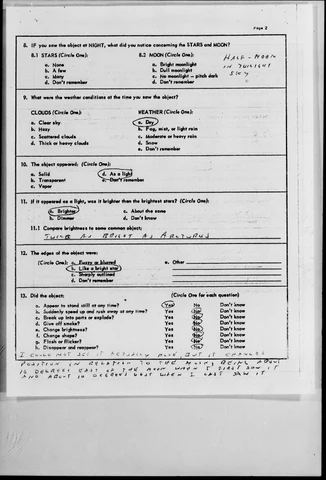 Page 2
8. IF you saw the object at NIGHT, what did you notice concerning the STARS and MOON?
8.1 STARS (Circle One): 8.2 MOON (Circle One):
a. None a. Bright moonlight
b. A few b. Dull moonlight
c. Many c. No moonlight – pitch dark
d. Don't remember d. Don't remember
HALF-MOON
IN TWILIGHT
SKY
9. What were the weather conditions at the time you saw the object?
CLOUDS (Circle One): WEATHER (Circle One):
a. Clear sky a. Dry
b. Hazy b. Fog, mist, or light rain
c. Scattered clouds c. Moderate or heavy rain
d. Thick or heavy clouds d. Snow
e. Don't remember
10. The object appeared: (Circle One):
a. Solid d. As a light
b. Transparent e. Don't remember
c. Vapor
11. If it appeared as a light, was it brighter than the brightest stars? (Circle One):
a. Brighter c. About the same
b. Dimmer d. Don't know
11.1 Compare brightness to some common object:
TWICE AS BRIGHT AS ARCTURUS
12. The edges of the object were:
(Circle One): a. Fuzzy or blurred e. Other
b. Like a bright star
c. Sharply outlined
d. Don't remember
13. Did the object: (Circle One for each question)
a. Appear to stand still at any time? Yes No Don't know
b. Suddenly speed up and rush away at any time? Yes No Don't know
c. Break up into parts or explode? Yes No Don't know
d. Give off smoke? Yes No Don't know
e. Change brightness? Yes No Don't know
f. Change shape? Yes No Don't know
g. Flash or flicker? Yes No Don't know
h. Disappear and reappear? Yes No Don't know
I COULD NOT SEE IT ACTUALLY MOVE, BUT IT CHANGED
POSITION IN RELATION TO THE MOON, BEING ABOUT
10 DEGREES EAST OF THE MOON WHEN I FIRST SAW IT
AND ABOUT 10 DEGREES WEST WHEN I LAST SAW IT